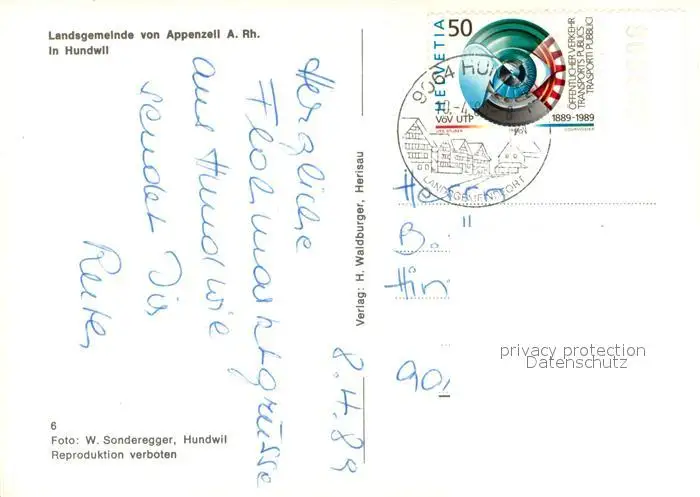 Landsgemeinde von Appenzell A. Rh.
in Hundwil
Herzliche
Flohmarktgrüsse
aus Hundwil
sendet Dir
8.4.89
6
Foto: W. Sonderegger, Hundwil
Reproduktion verboten
Verlag: H. Waldburger, Herisau
HELVETIA 50
ÖFFENTLICHER VERKEHR
TRANSPORTS PUBLICS
TRASPORTI PUBBLICI
VöV UTP
1889-1989
9064 HU
LANDSGEMEINDEORT
Herrn
B.
Hin
90
privacy protection
Datenschutz